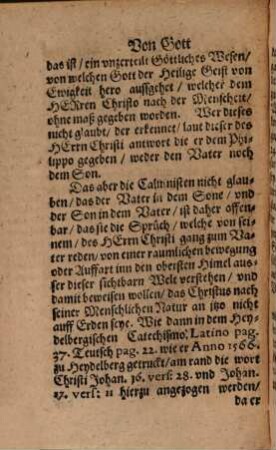 Von Gott
das ist / ein vnzerteilt Göttliches Wesen /
von welchen Gott der Heilige Geist von
Ewigkeit hero aussgehet / welcher dem
HERren Christo nach der Menscheit /
ohne maß gegeben worden. Wer dieses
nicht glaubt / der erkennet / laut dieser des
HErrn Christi antwort die er dem Phi-
lippo gegeben / weder den Vater noch
dem Son.
Das aber die Calvinisten nicht glau-
ben / das der Vater in dem Sone / vnd
der Son in dem Vater / ist daher offen-
bar / das sie die Sprüch / welche von sei-
nem / des HErrn Christi gang zum Va-
ter reden / von einer raumlichen bewegung
oder Auffart inn den obersten Himel aus-
ser dieser sichtbarn Welt verstehen / vnd
damit beweisen wollen / das Christus nach
seiner Menschlichen Natur an jtzo nicht
auff Erden seye. Wie dann in dem Hey-
delbergischen Catechismo. Latino pag.
37. Teutsch pag. 22. wie er Anno 1566.
zu Heydelberg getruckt / am rand die wort
Christi Johan. 16. vers: 28. vnd Johan.
17. vers: 11 hierzu angezogen werden /
da er